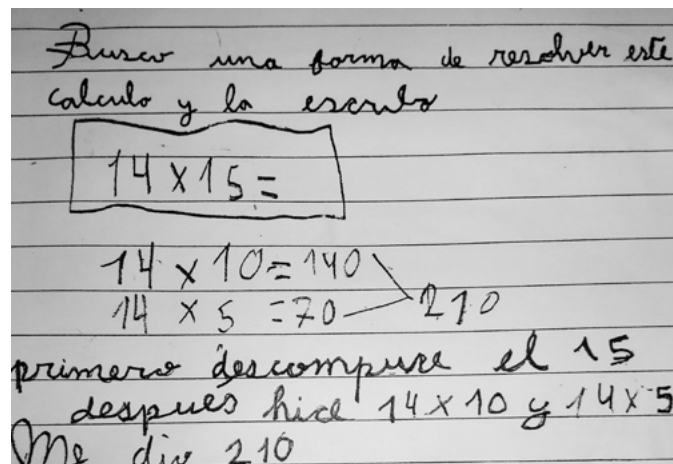 Busco una forma de resolver este
calculo y la escribo
14 x 15 =
14 x 10 = 140
14 x 5 = 70 210
primero descompuse el 15
despues hice 14 x 10 y 14 x 5
Me dio 210